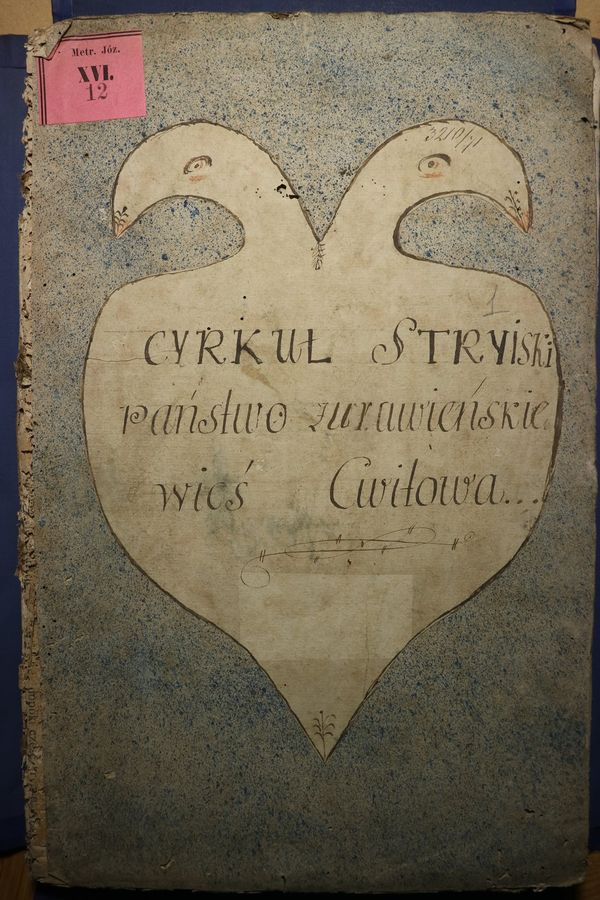 Metr. Józ.
XVI.
12
3210/71
1
CYRKUŁ STRYiSki
Państwo żurawieńskie
wieś Cwitowa...